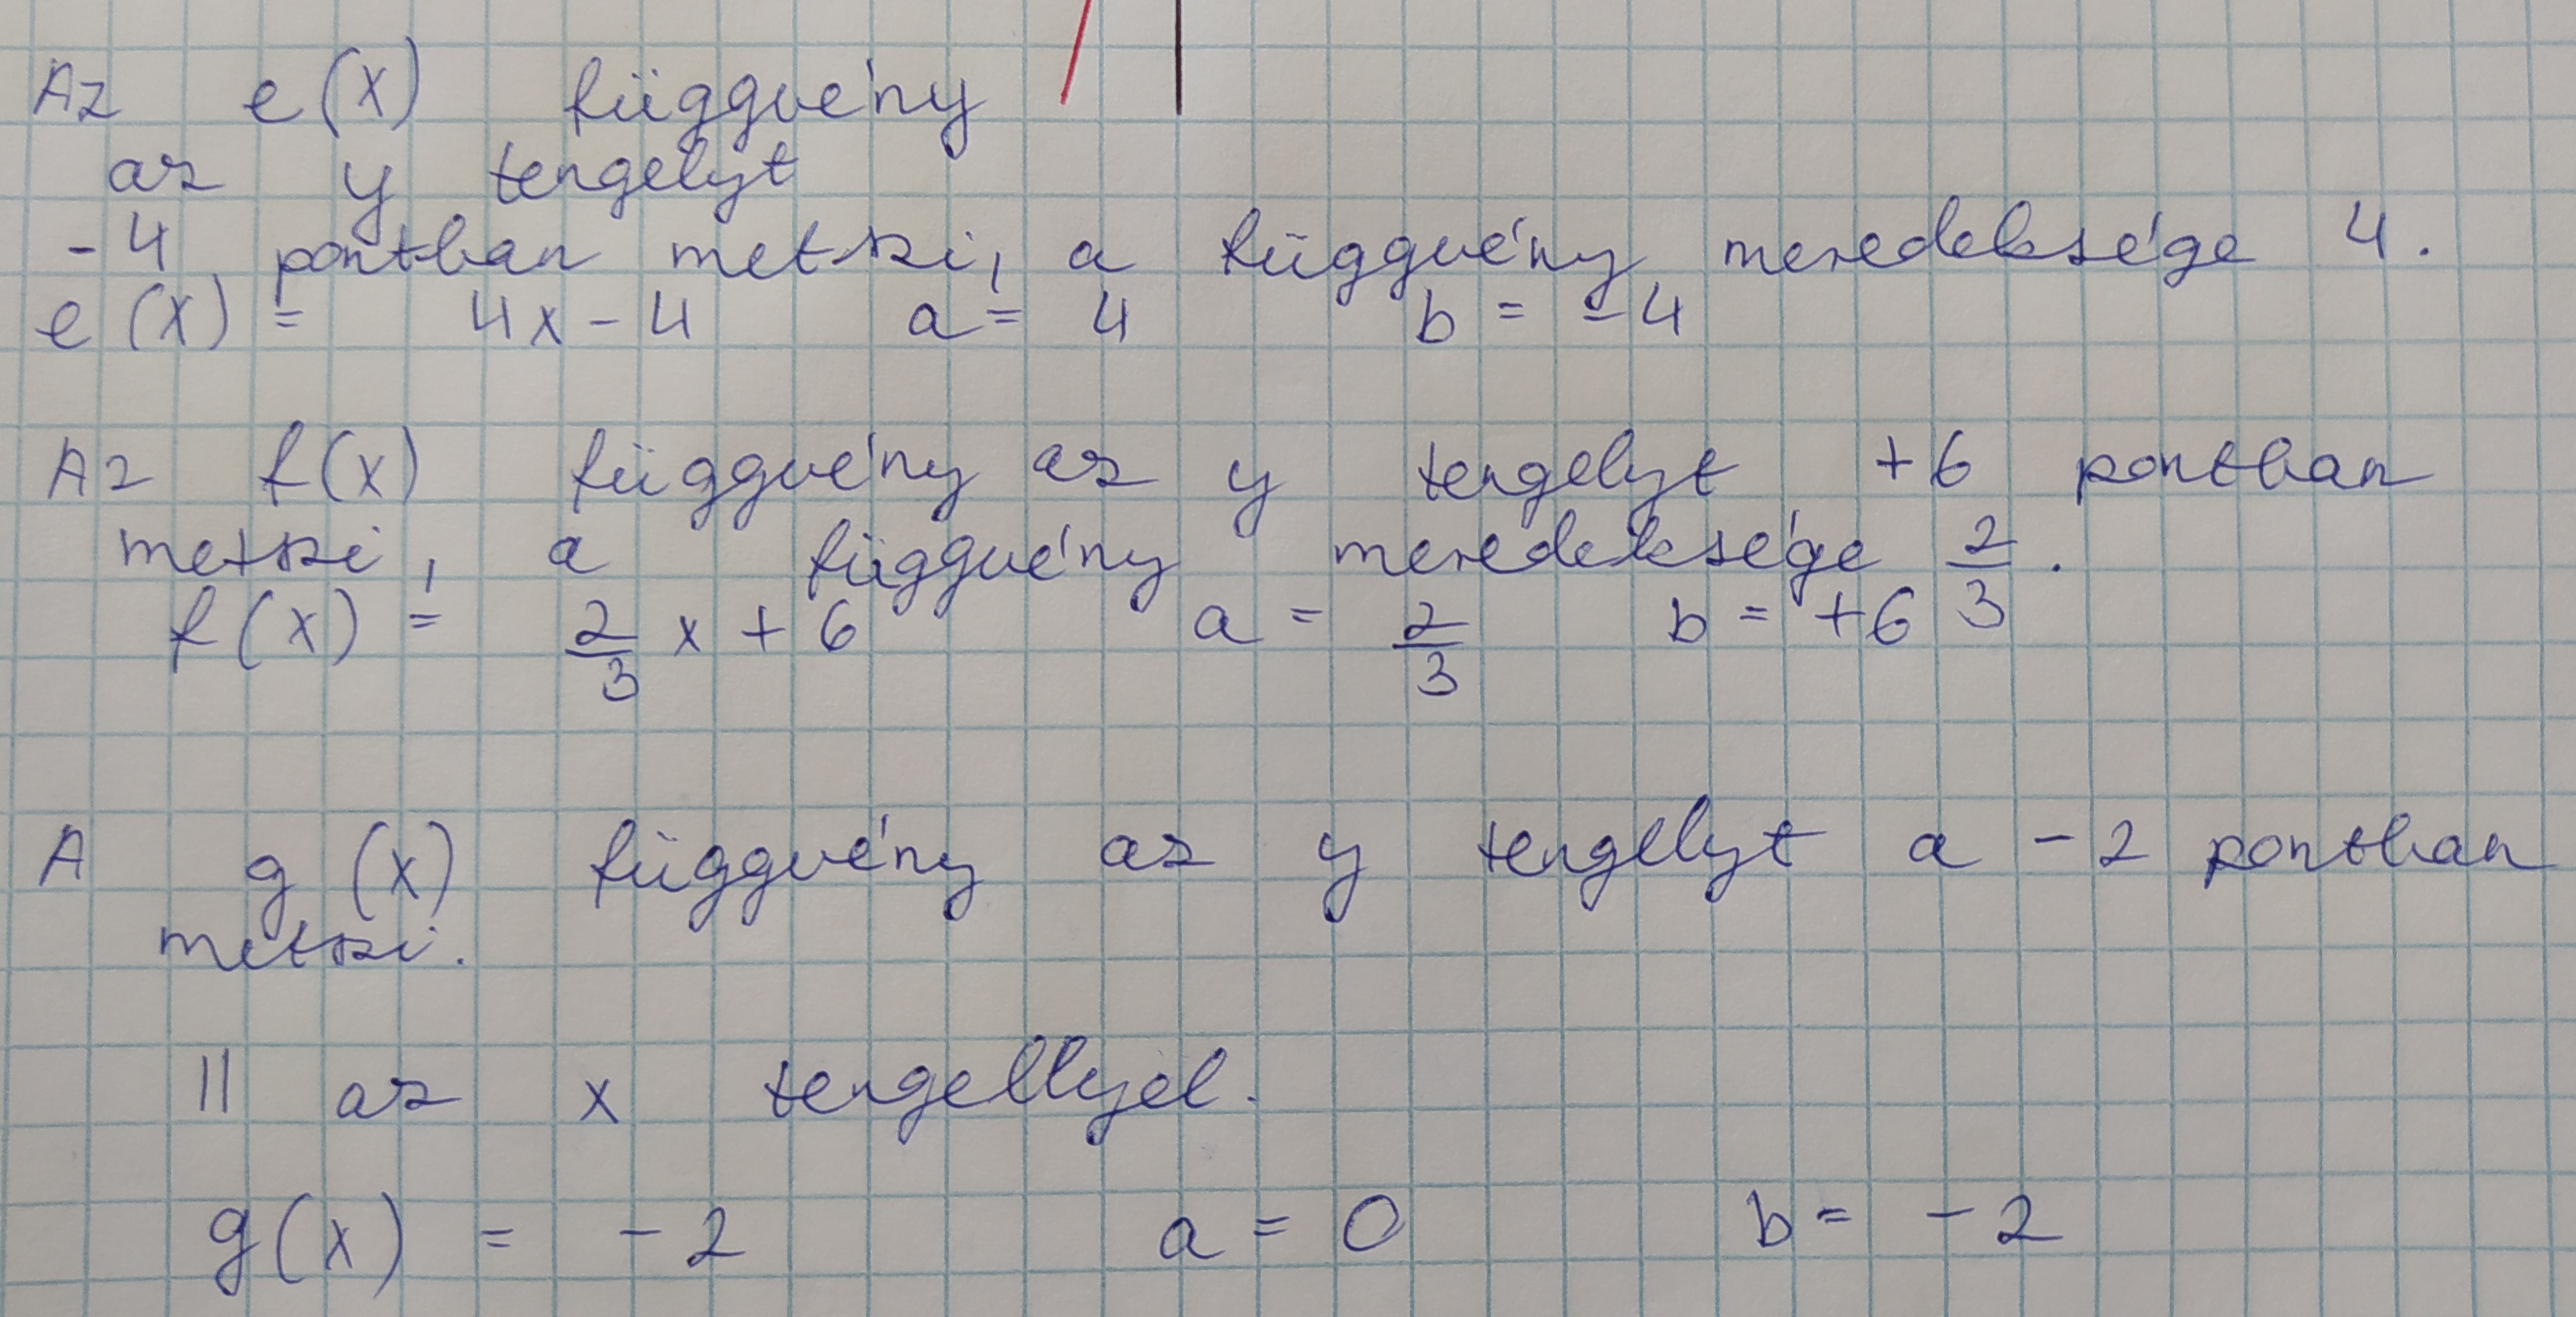 Az e(x) függvény
az y tengelyt
-4 pontban metszi, a függvény meredeksége 4.
e(x) = 4x - 4 a = 4 b = -4
Az f(x) függvény az y tengelyt +6 pontban
metszi, a függvény meredeksége 2/3.
f(x) = 2/3 x + 6 a = 2/3 b = +6
A g(x) függvény az y tengelyt a -2 pontban
metszi.
|| az x tengellyel.
g(x) = -2 a = 0 b = -2